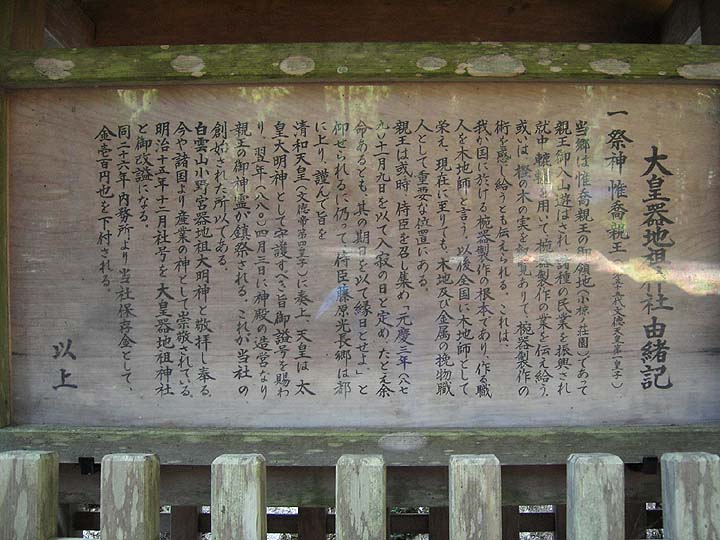 大皇器地祖神社 由緒記
一 祭神 惟喬親王(五十五代文徳天皇第一皇子)
当郷は惟喬親王の御領地(小椋ノ荘園)であって
親王御入山遊ばされ、諸種の民業を振興され
就中、轆轤を用いて、椀器製作の業を伝え給う、
或いは、橙の木の実を御覧ありて、椀器製作の
術を感じ給うとも伝えられる。これは、
我か国に於ける椀器製作の根本であり、作る職
人を木地師と言う。以後全国に木地師として
栄え、現在に至りても、木地及び金属の挽物職
人として重要な位置にある。
親王は或時、侍臣を召し集め、元慶三年(八七
九)十一月九日を以て入寂の日と定め、たとえ余
命あるとも、其の期日を以て縁日とせよ」と
仰せられるに仍って、侍臣藤原光長郷は都
に上り、謹んで旨を
清和天皇(文徳帝第四皇子)に奏上、天皇は太
皇大明神として守護すべき旨御諡号を賜わ
り、翌年(八八〇)四月三日に神殿の造営なり
親王の御神霊が鎮祭される。これが当社の
創始された所以である。
白雲山小野宮器地祖大明神と敬拝し奉る。
今や諸国より産業の神として崇敬されている。
明治十五年十二月社号を大皇器地祖神社
と御改諡になる。
同二十六年内務所より当社保存金として、
金壱百円也を下付される。
以上